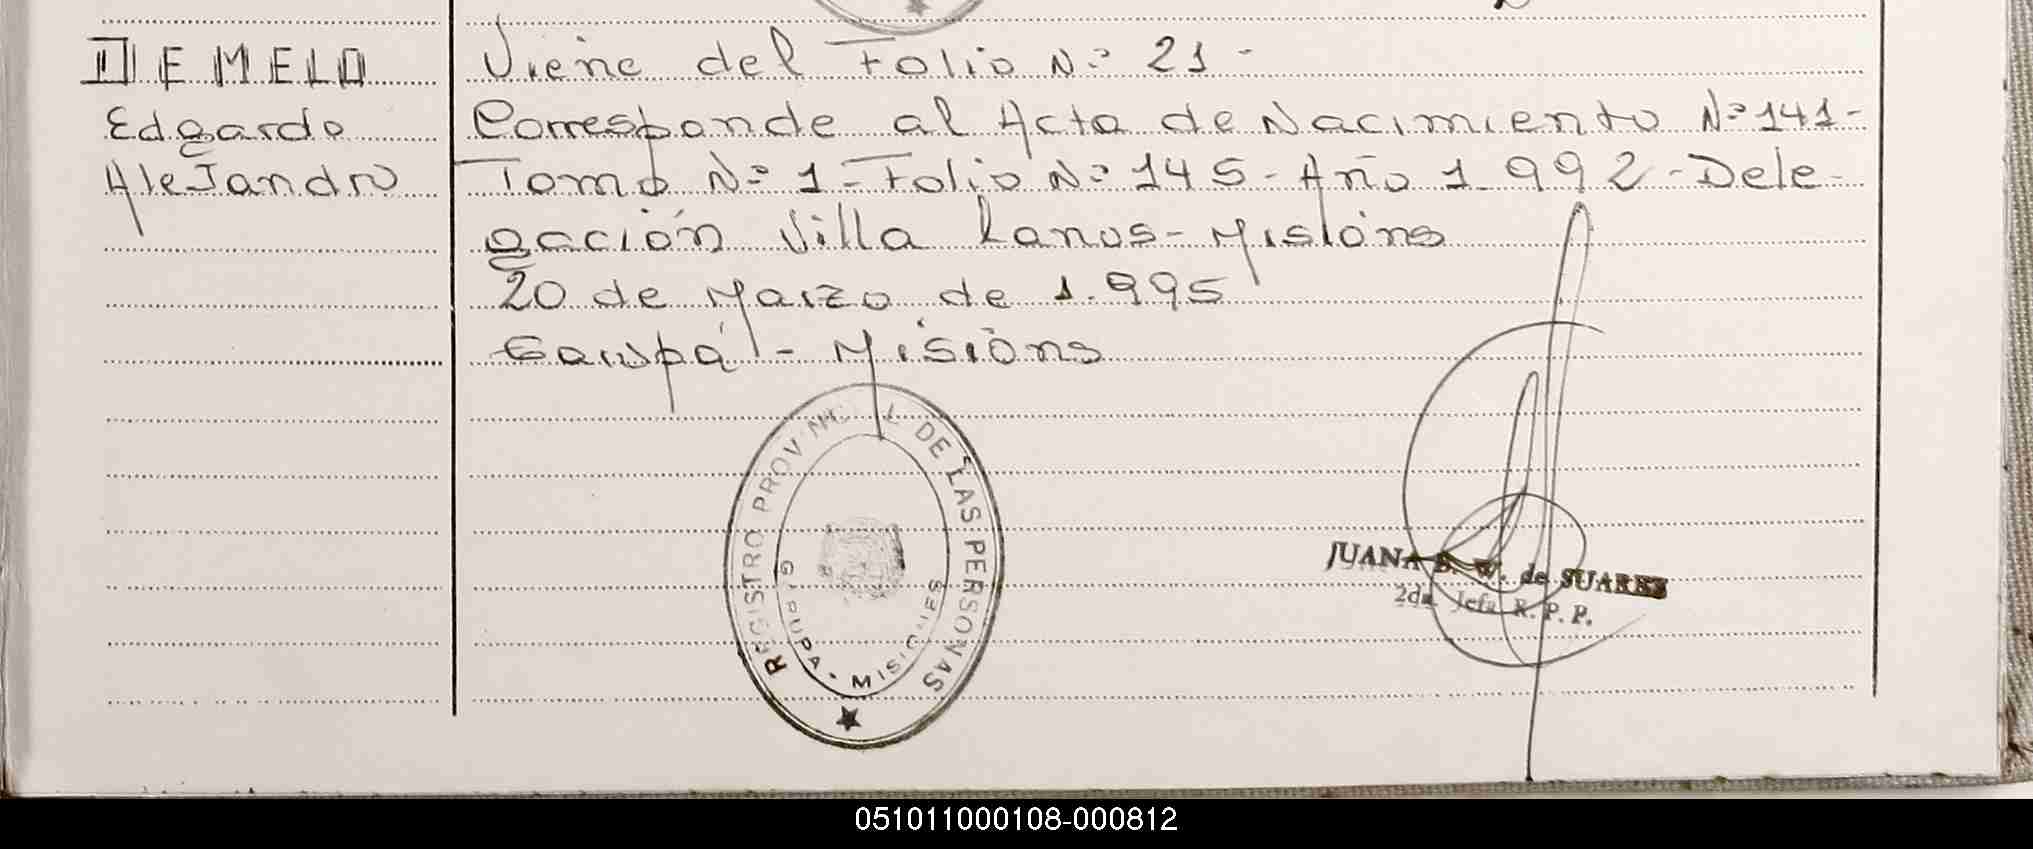 DE MELO
Edgardo
AleJandro
Viene del Folio N.º 21-
Corresponde al Acta de Nacimiento N.º 141-
Tomo N.º 1-Folio N.º 145-Año 1.992-Dele-
gación Villa Lanus-Misiónes
20 de Marzo de 1.995
Garupá - Misiónes
REGISTRO PROVINCIAL DE LAS PERSONAS
GARUPA - MISIONES
JUANA B. W. de SUAREZ
2da. Jefa R. P. P.
051011000108-000812